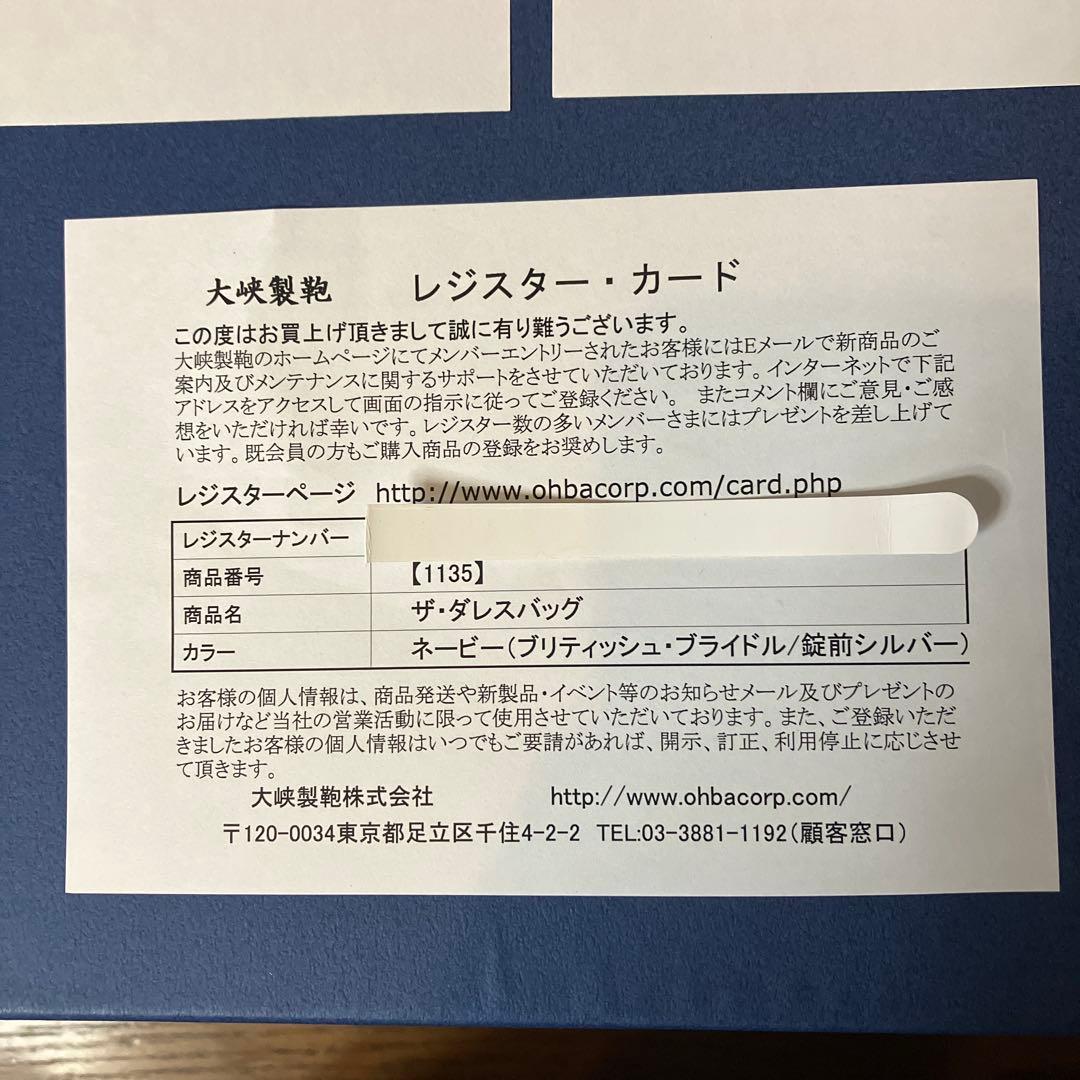 大峡製鞄 レジスター・カード
この度はお買上げ頂きまして誠に有り難うございます。
大峡製鞄のホームページにてメンバーエントリーされたお客様にはEメールで新商品のご
案内及びメンテナンスに関するサポートをさせていただいております。インターネットで下記
アドレスをアクセスして画面の指示に従ってご登録ください。 またコメント欄にご意見・ご感
想をいただければ幸いです。レジスター数の多いメンバーさまにはプレゼントを差し上げて
います。既会員の方もご購入商品の登録をお奨めします。
レジスターページ http://www.ohbacorp.com/card.php
レジスターナンバー
商品番号 【1135】
商品名 ザ・ダレスバッグ
カラー ネービー(ブリティッシュ・ブライドル/錠前シルバー)
お客様の個人情報は、商品発送や新製品・イベント等のお知らせメール及びプレゼントの
お届けなど当社の営業活動に限って使用させていただいております。また、ご登録いただ
きましたお客様の個人情報はいつでもご要請があれば、開示、訂正、利用停止に応じさせ
て頂きます。
大峡製鞄株式会社 http://www.ohbacorp.com/
〒120-0034東京都足立区千住4-2-2 TEL:03-3881-1192(顧客窓口)